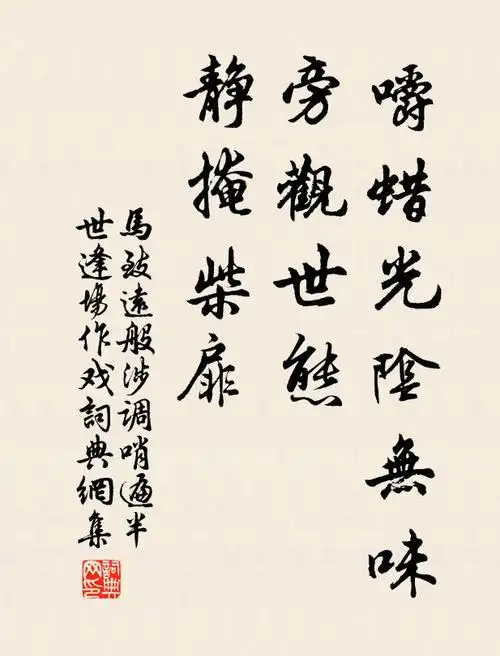 嚼蜡光陰無味
旁觀世態
静掩柴扉
馬致遠般涉調哨遍半
世逢場作戏詞典網集
詞典网印